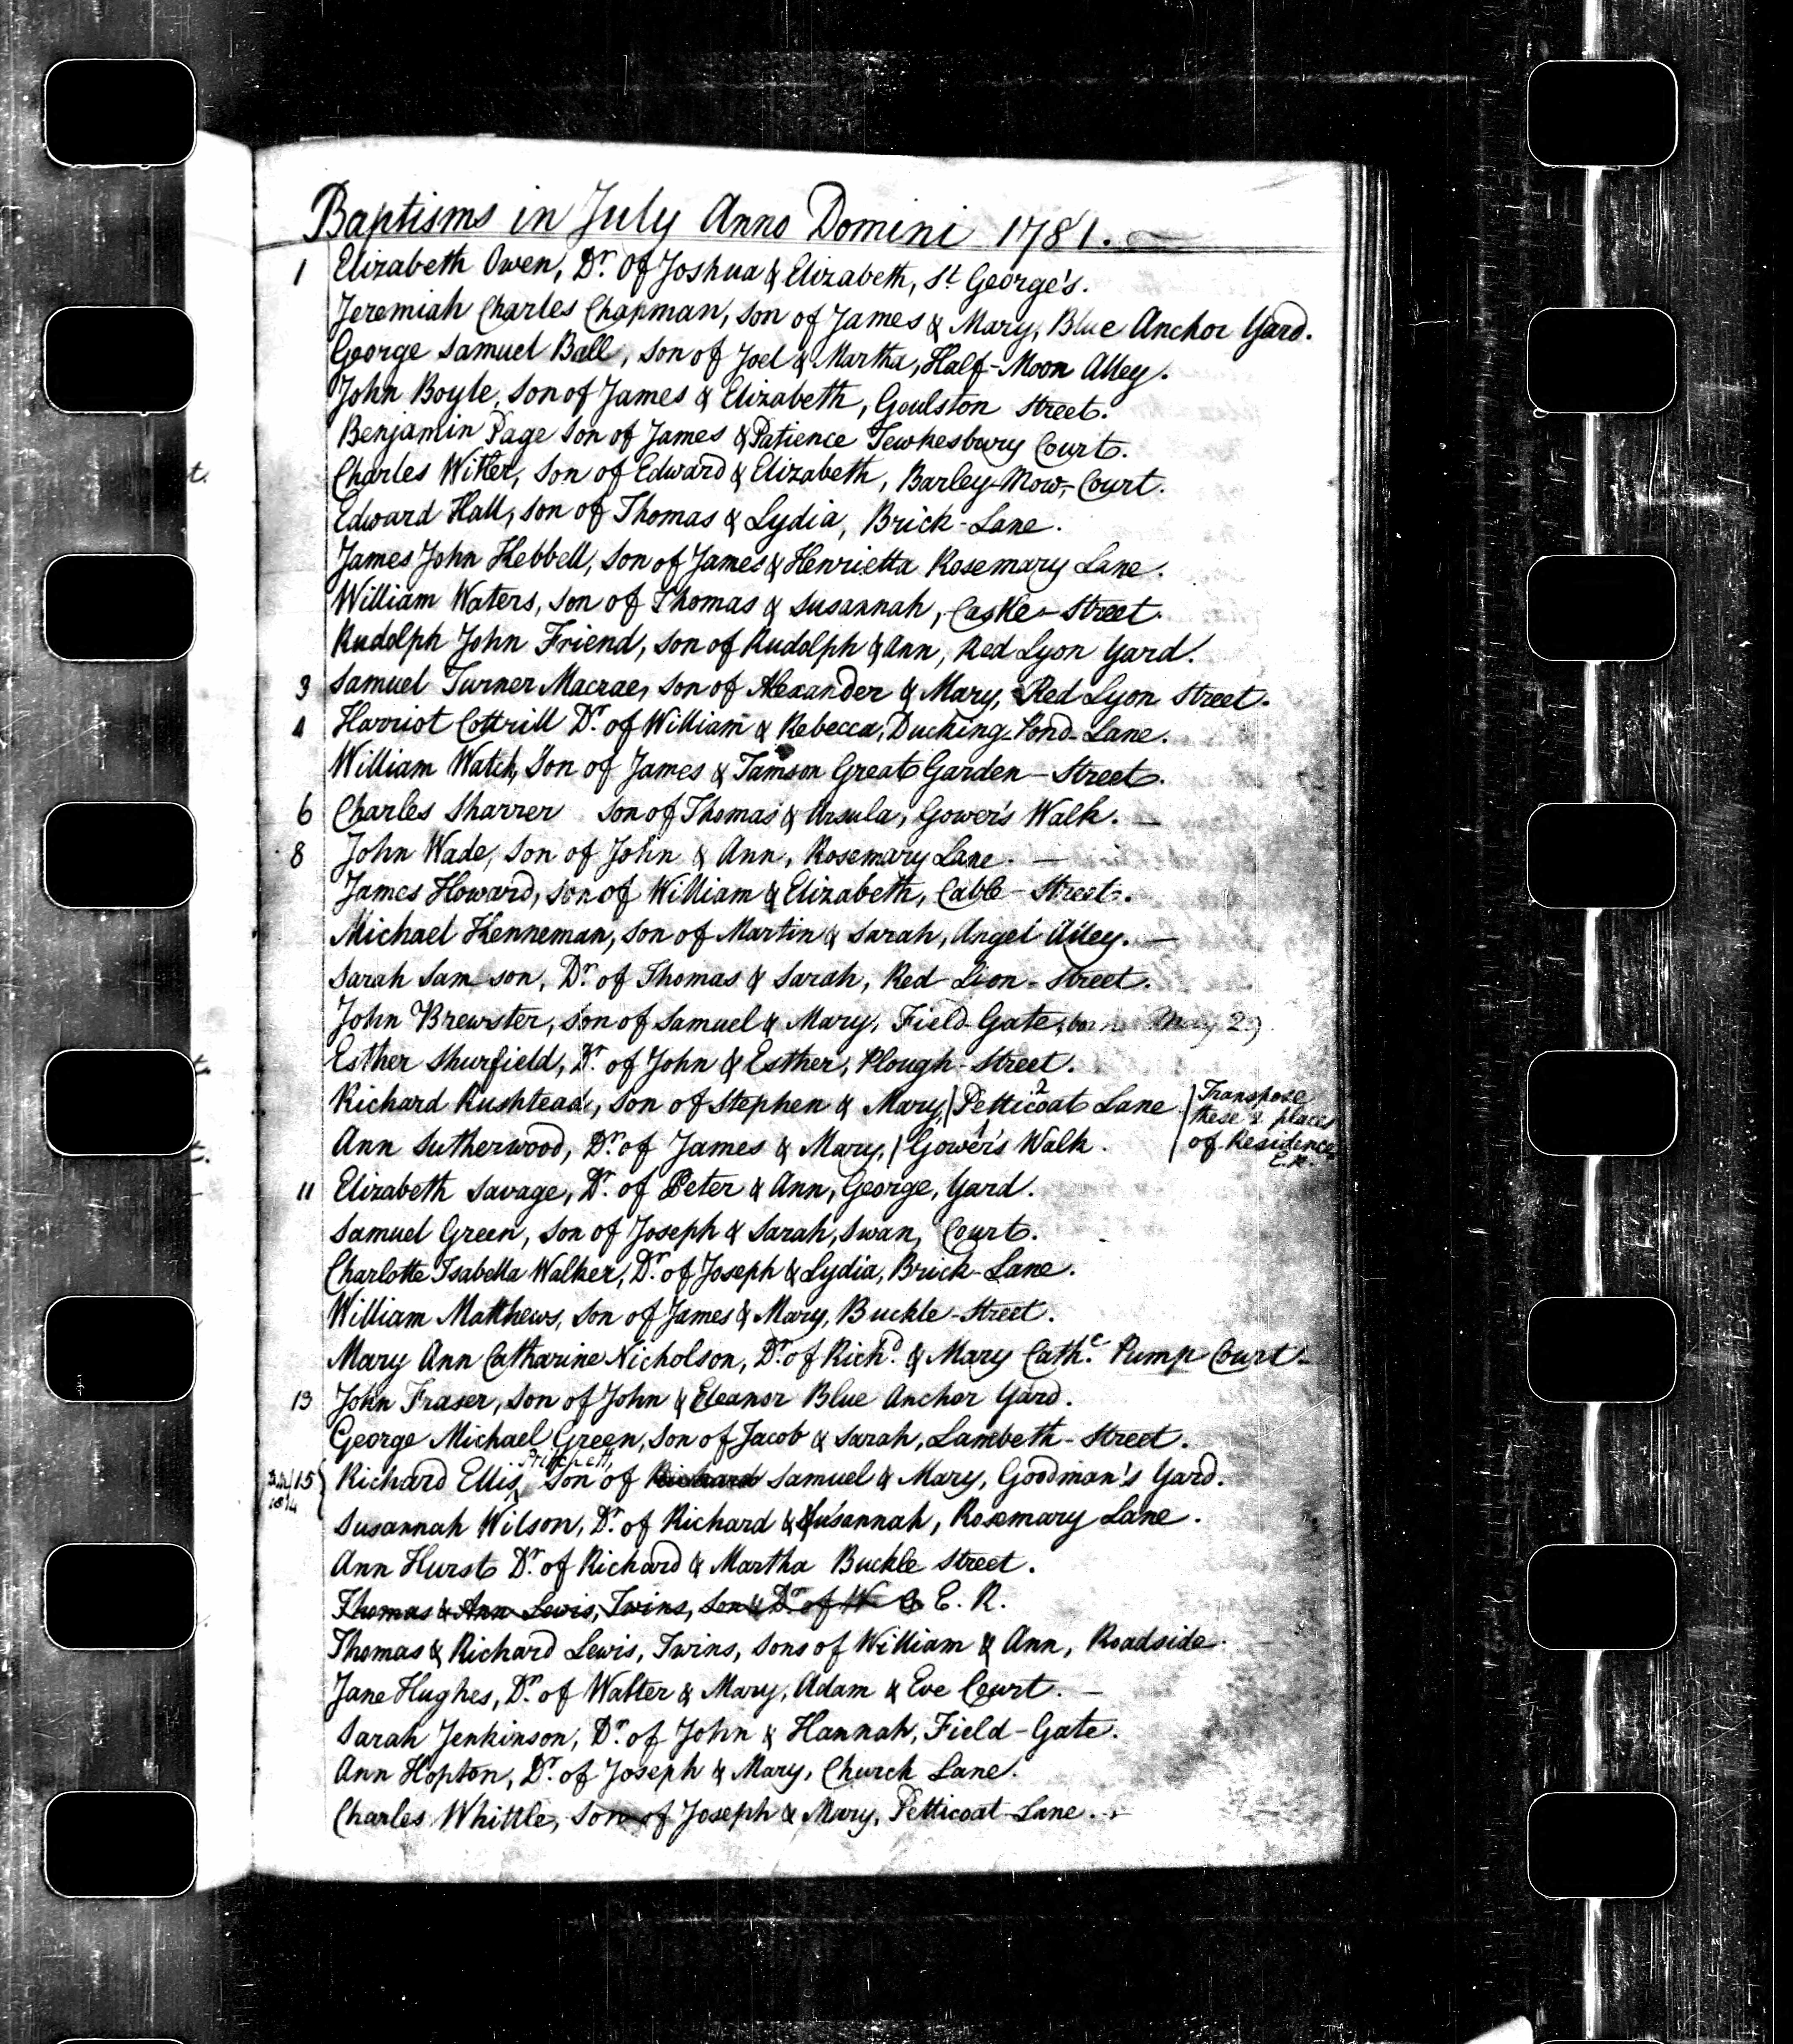 Baptisms in July Anno Domini 1781.
1 Elizabeth Owen, Dr. of Joshua & Elizabeth, St George's.
Jeremiah Charles Chapman, Son of James & Mary, Blue Anchor Yard.
George Samuel Ball, Son of Joel & Martha, Half-Moon Alley.
John Boyle, Son of James & Elizabeth, Goulston Street.
Benjamin Page Son of James & Patience Tewkesbury Court.
Charles Witler, Son of Edward & Elizabeth, Barley-Mow-Court.
Edward Hall, Son of Thomas & Lydia, Brick-Lane.
James John Hebbell, Son of James & Henrietta Rosemary Lane.
William Waters, Son of Thomas & Susannah, Castle-Street.
Rudolph John Friend, Son of Rudolph & Ann, Red Lyon Yard.
3 Samuel Turner Macrae, Son of Alexander & Mary, Red Lyon Street.
4 Harriot Cottrill Dr. of William & Rebecca, Ducking-Pond-Lane.
William Watch, Son of James & Tamson Great Garden-Street.
6 Charles Sharrer Son of Thomas & Ursula, Gower's Walk.
8 John Wade, Son of John & Ann, Rosemary Lane.
James Howard, Son of William & Elizabeth, Cable-Street.
Michael Henneman, Son of Martin & Sarah, Angel Alley.
Sarah Samson, Dr. of Thomas & Sarah, Red Lion-Street.
John Brewster, Son of Samuel & Mary, Field Gate, born May 29
Esther Shurfield, Dr. of John & Esther, Plough-Street.
Richard Rushtead, Son of Stephen & Mary, Petticoat 2 Lane Transpose these 2 places
Ann Sutherwood, Dr. of James & Mary, Gower's 1 Walk. of Residence E.R.
11 Elizabeth Savage, Dr. of Peter & Ann, George, Yard.
Samuel Green, Son of Joseph & Sarah, Swan, Court.
Charlotte Isabella Walker, Dr. of Joseph & Lydia, Brick-Lane.
William Matthews, Son of James & Mary, Buckle-Street.
Mary Ann Catharine Nicholson, Dr. of Richd. & Mary Cathe. Pump Court.
13 John Fraser, Son of John & Eleanor Blue Anchor Yard.
George Michael Green, Son of Jacob & Sarah, Lambeth-Street.
15 Richard Ellis Pritchett, Son of Richard Samuel & Mary, Goodman's Yard.
Susannah Wilson, Dr. of Richard & Susannah, Rosemary Lane.
Ann Hurst Dr. of Richard & Martha Buckle Street.
Thomas & Ann Lewis, Twins, Son & Dr. of W & E. R.
Thomas & Richard Lewis, Twins, Sons of William & Ann, Roadside.
Jane Hughes, Dr. of Walter & Mary, Adam & Eve Court.
Sarah Jenkinson, Dr. of John & Hannah, Field-Gate.
Ann Hopton, Dr. of Joseph & Mary, Church Lane.
Charles Whittle, Son of Joseph & Mary, Petticoat-Lane.